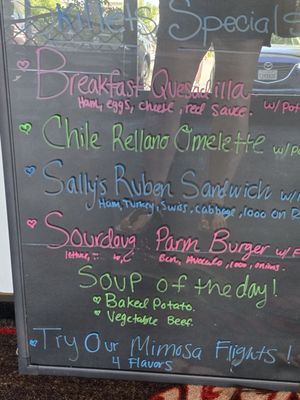 Skillets Specials
Breakfast Quesadilla
Ham, eggs, cheese, red sauce. w/ Pot
Chile Rellano Omelette w/ Po
Sally's Ruben Sandwich w/
Ham, Turkey, Swiss, cabbage, 1000 on R
Sourdoug Parm Burger w/ F
Bcn, Avocado, 1000, onions.
Soup of the day!
Baked Potato.
Vegetable Beef.
Try Our Mimosa Flights!
4 Flavors